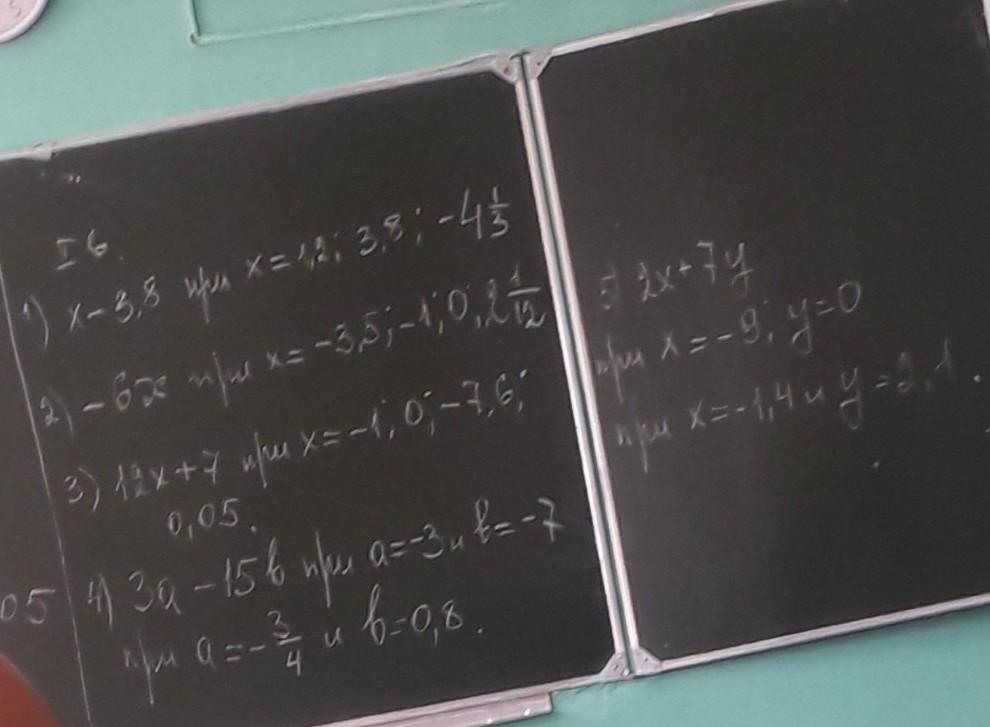 I б.
1) x-3,8 при x=1,2; 3,8; -4 1/3
2) -6x при x=-3,5; -1; 0; 2 1/12
3) 12x+7 при x=-1; 0; -7,6;
0,05.
4) 3a-15b при a=-3 и b=-7
при a=-3/4 и b=0,8.
05
5) 2x+7y
при x=-9; y=0
при x=-1,4 и y=2,1.